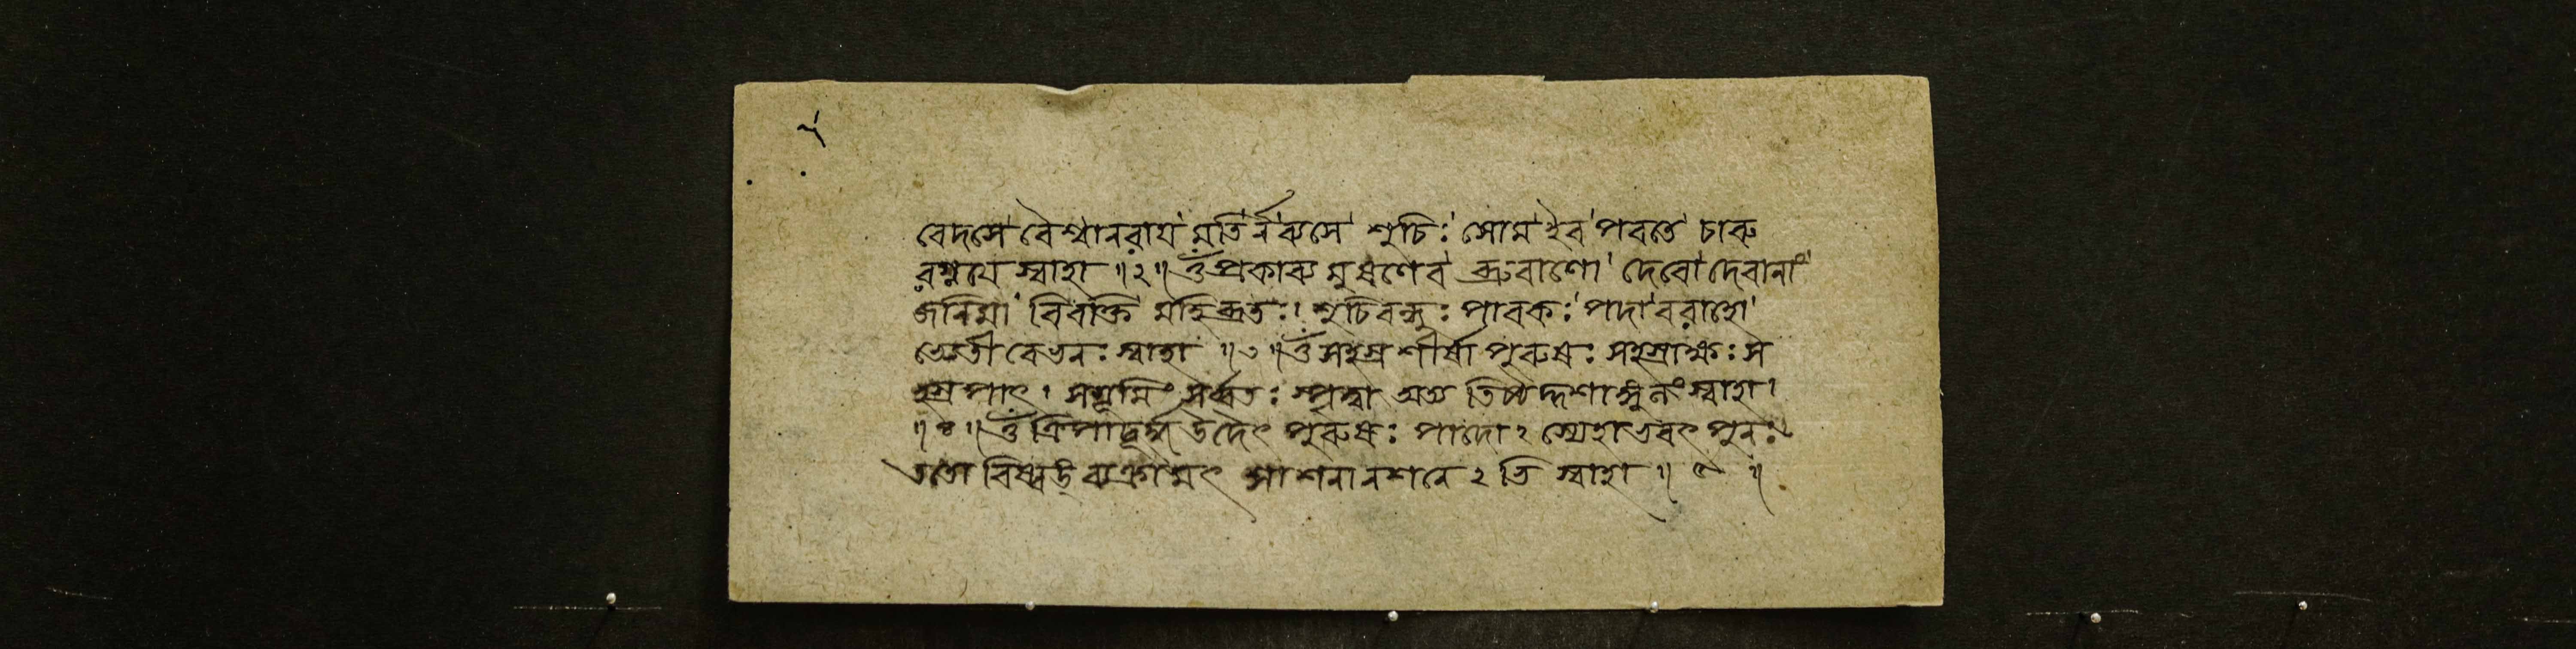 বেদসে বৈশ্বানরায় মতির্নব্যসে শুচিঃ সোম ইব পবতে চারু
রগ্নয়ে স্বাহা ॥২॥ ওঁ প্রকাব্য মুষণেব ব্রুবাণো দেবো দেবানাং
জনিমা বিবক্তি মহিব্রতঃ। শুচিবন্ধুঃ পাবকঃ পদা বরাহো
রেভন্ স্বাহা ॥৩॥ ওঁ সহস্রশীর্ষা পুরুষঃ সহস্রাক্ষঃ স
হস্রপাৎ। সভূমিং সর্ব্বতঃ স্পৃত্বা অত্য তিষ্ঠদ্দশাঙ্গুলং স্বাহা।
॥৪॥ ওঁ ত্রিপাদূর্দ্ধ উদৈৎ পুরুষঃ পাদোঽস্যেহাভবৎ পুনঃ
ততো বিষ্বঙ্ ব্যক্রামৎ সাশনানশনেঽতি স্বাহা ॥ ৫ ॥